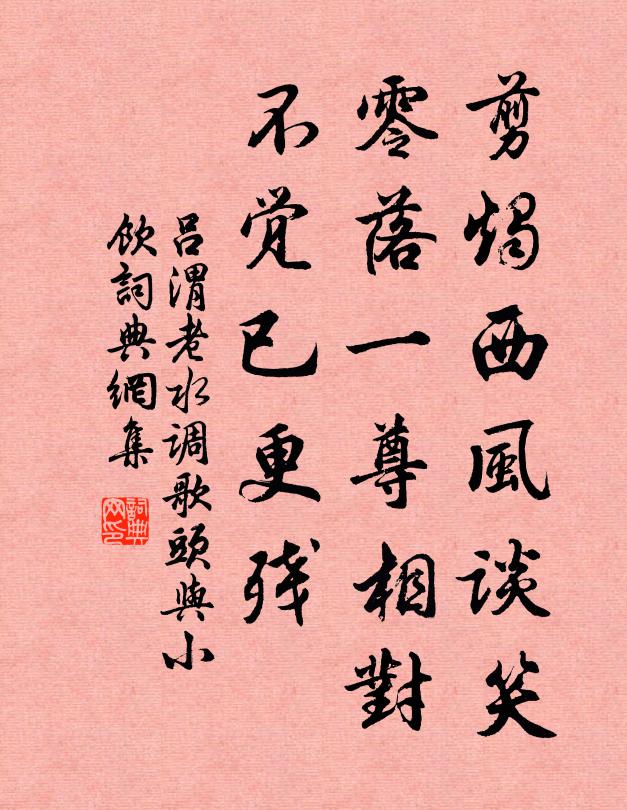 剪燭西風談笑
零落一尊相對
不覚已更残
吕渭老水调歌頭與小
飲詞典網集
詞典
网印